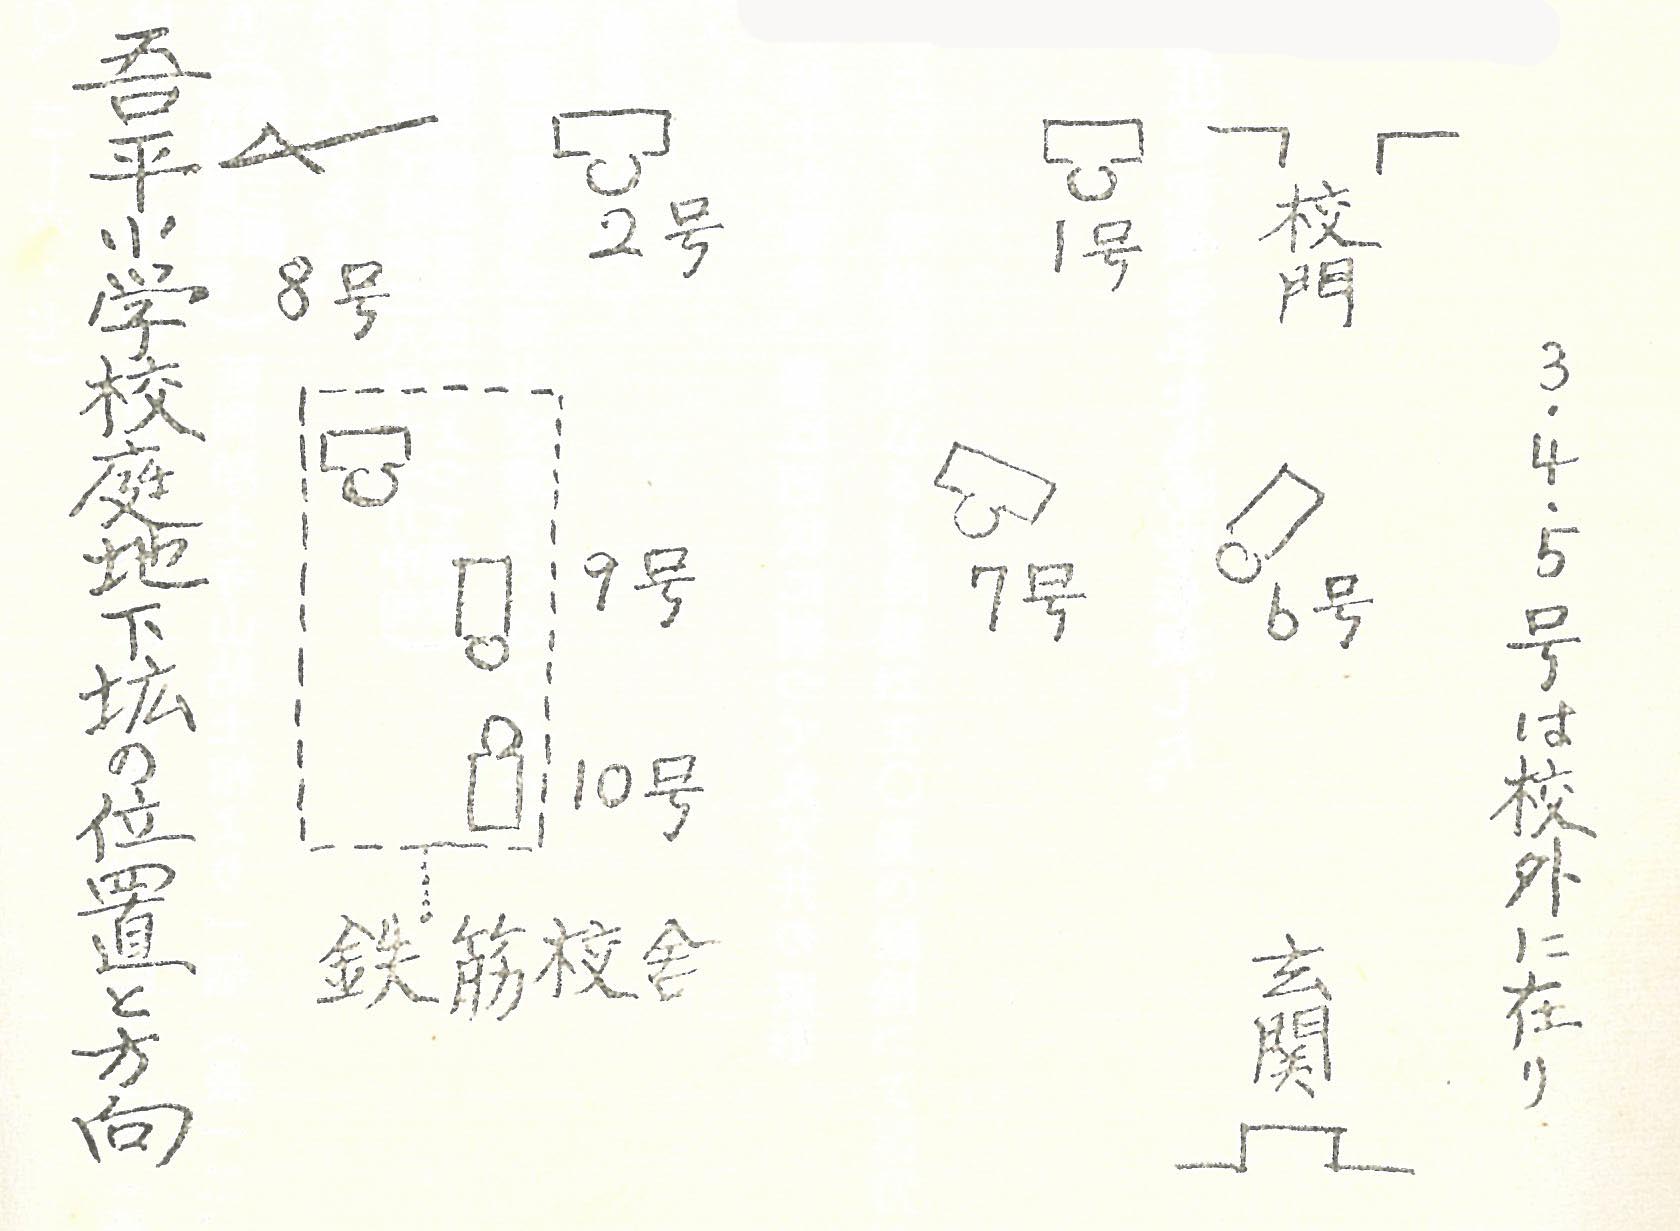 3・4・5号は校外に在り
校門
1号
2号
8号
6号
7号
9号
10号
鉄筋校舎
玄関
吾平小学校庭地下壙の位置と方向